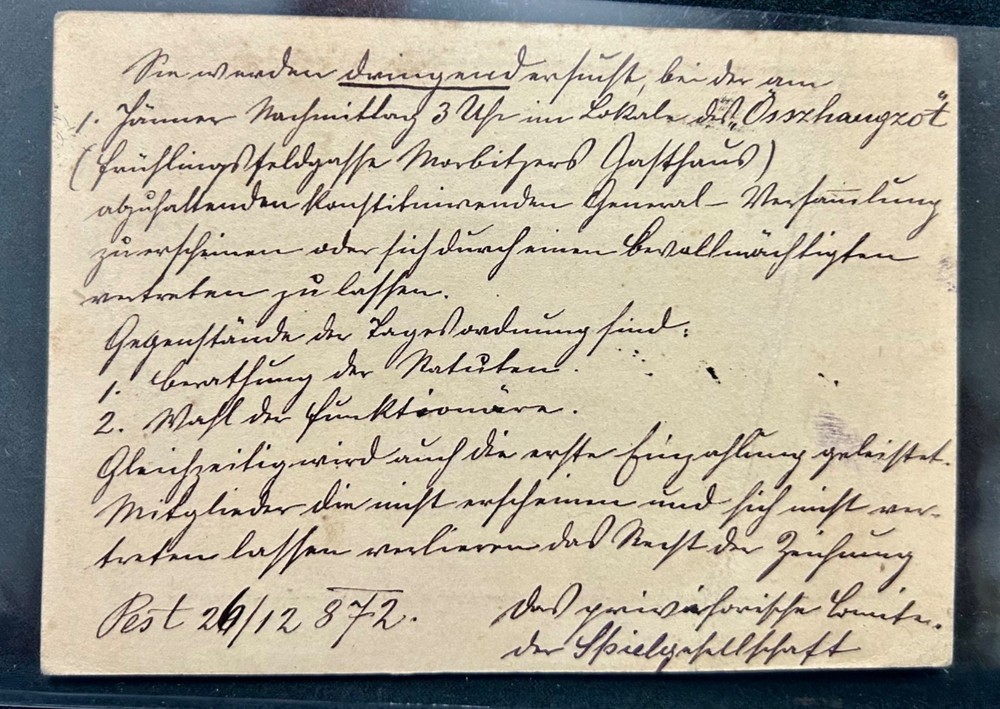 Sie werden dringend ersucht, bei der am
1. Jänner Nachmittag 3 Uhr im Lokale des „Összhangzöt"
(Frühlingsfeldgasse Morbitzers Gasthaus)
abzuhaltenden konstituirenden General-Versam̅lung
zu erscheinen oder sich durch einen Bevollmächtigten
vertreten zu lassen.
Gegenstände der Tagesordnung sind:
1. Berathung der Statuten.
2. Wahl der Funktionäre.
Gleichzeitig wird auch die erste Einzahlung geleistet.
Mitglieder die nicht erscheinen und sich nicht ver-
treten lassen verlieren das Recht der Zeichnung
Pest 26/12 872. Das provisorische Comite.
der Spielgesellschaft